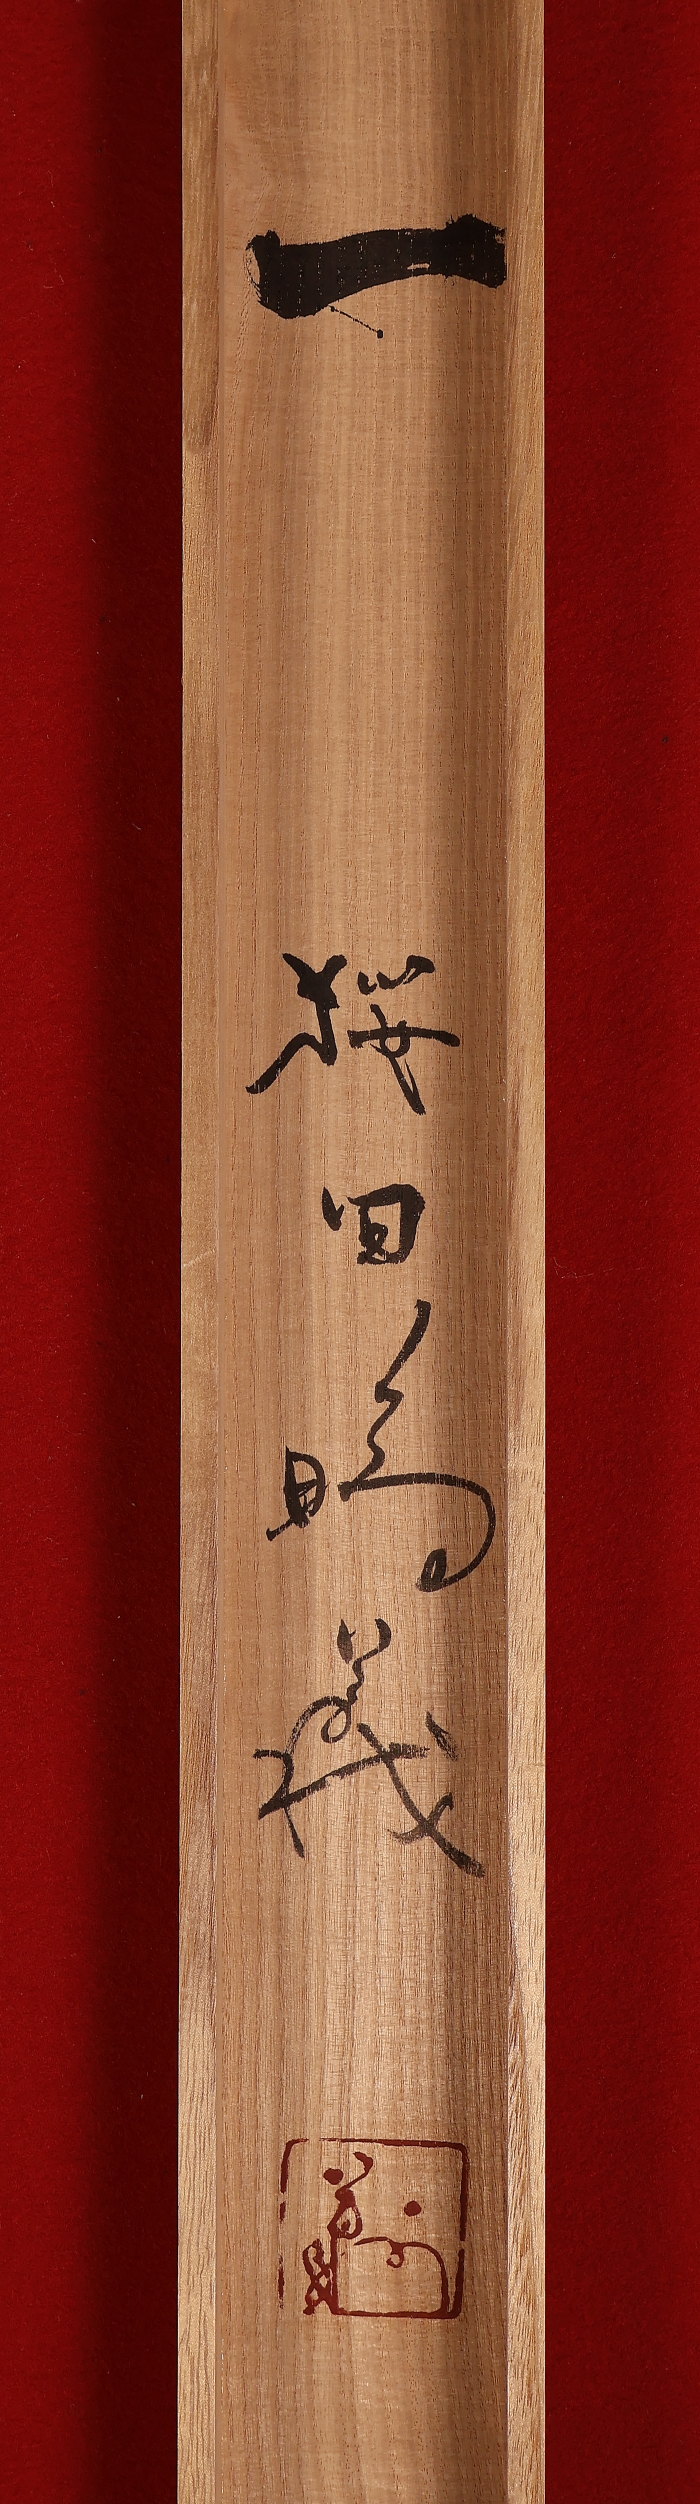 一
桜田晴義